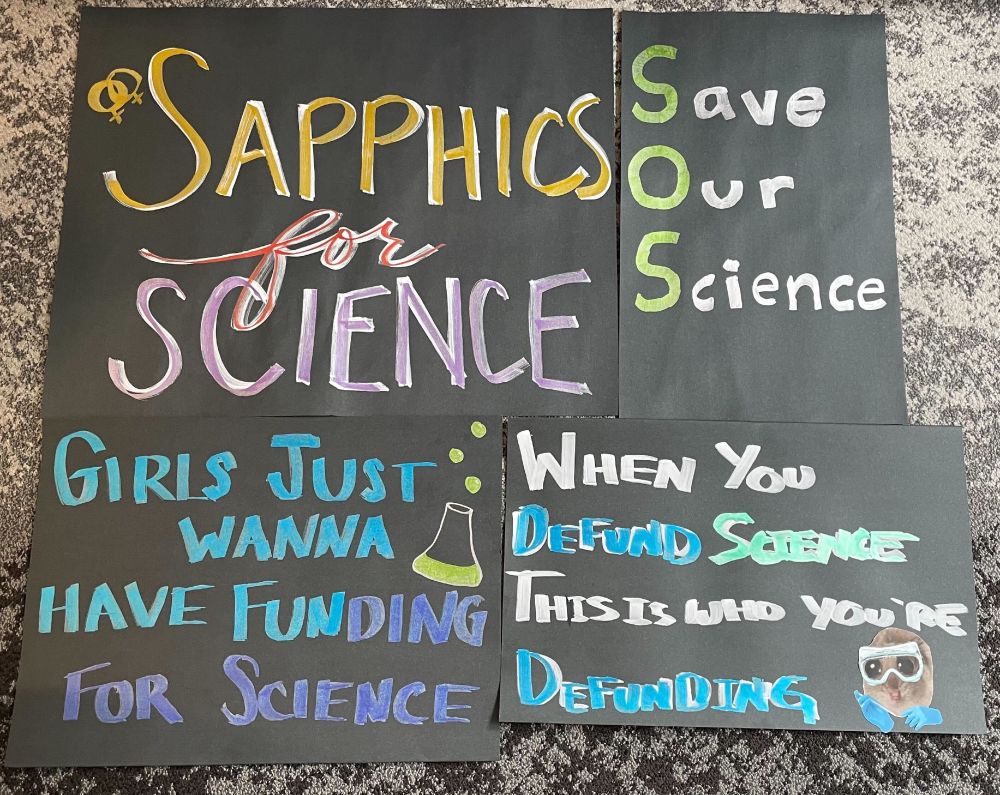 SAPPHICS
for
SCIENCE
Save
Our
Science
GIRLS JUST
WANNA
HAVE FUNDING
FOR SCIENCE
WHEN YOU
DEFUND SCIENCE
THIS IS WHO YOU'RE
DEFUNDING